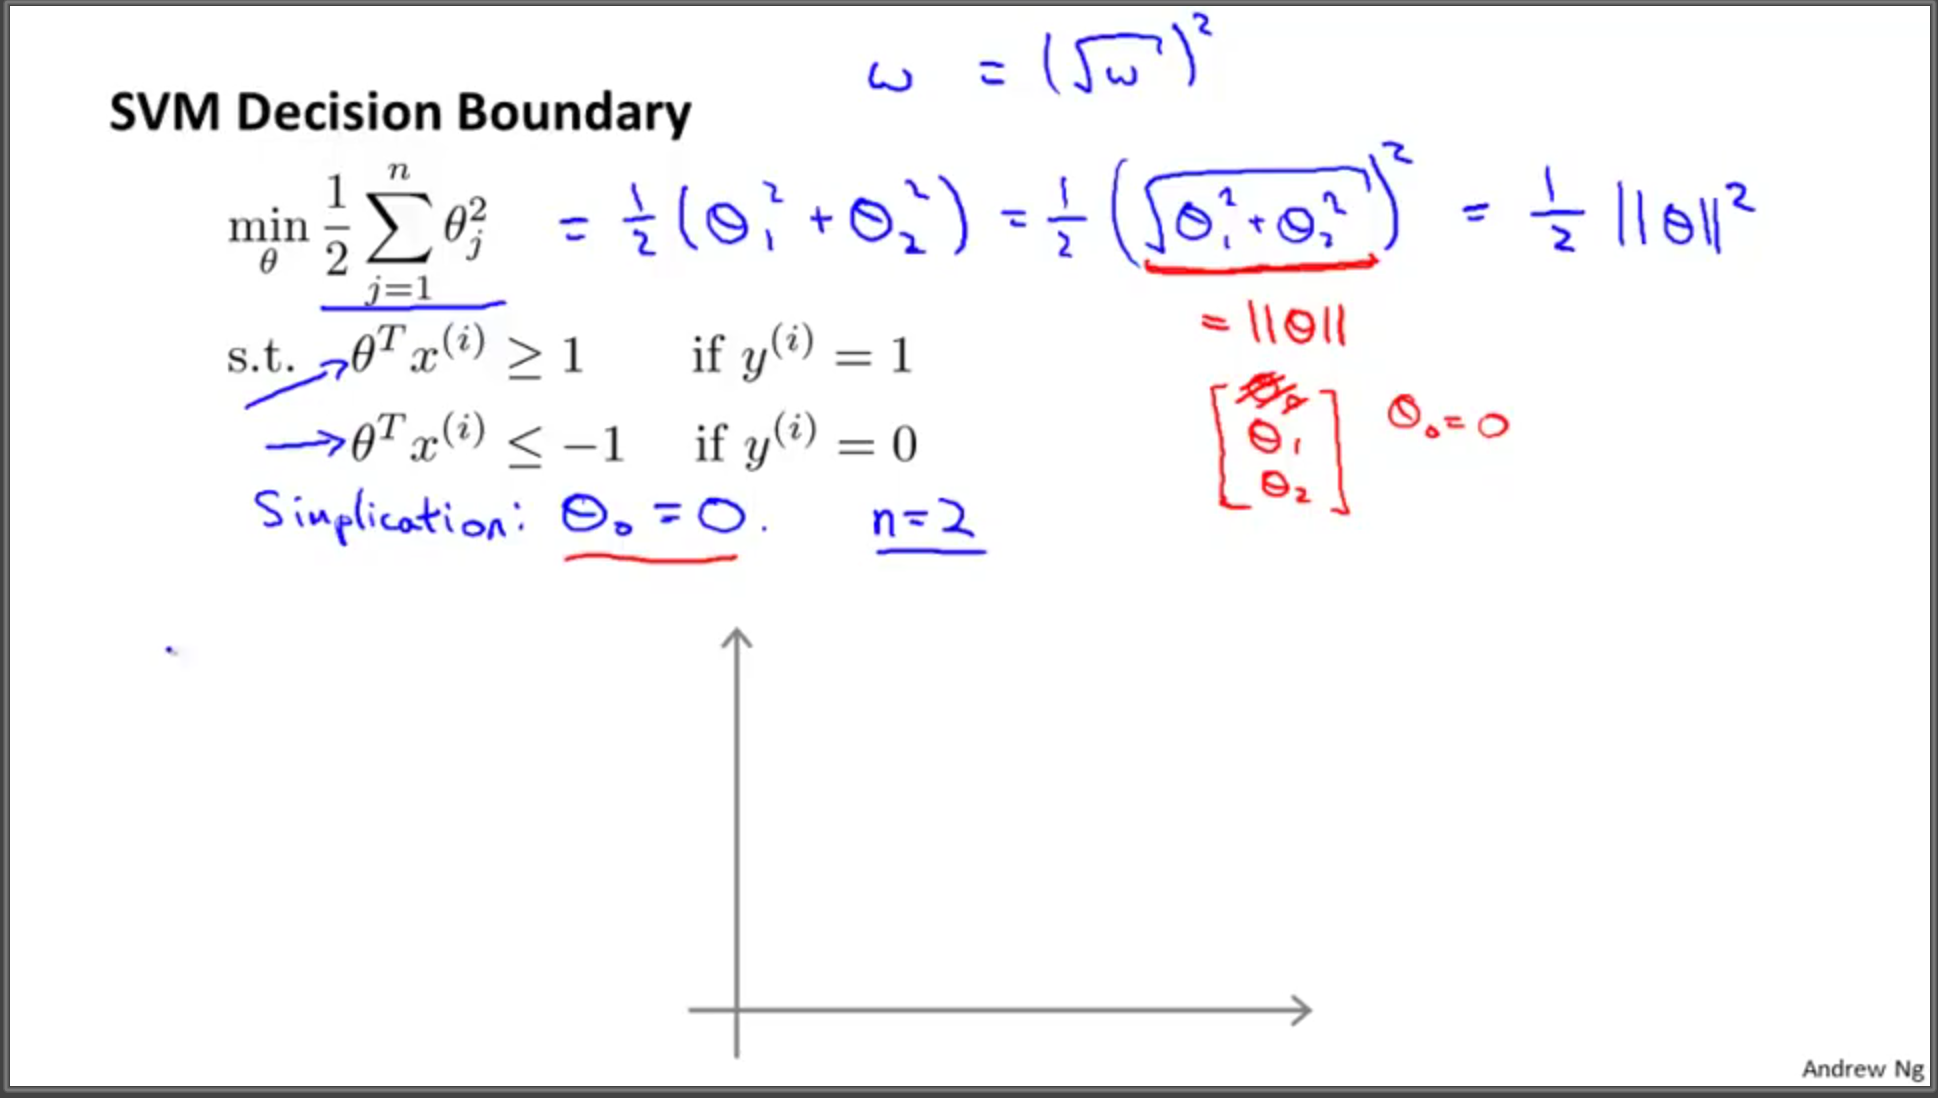 ω = (√ω)²
SVM Decision Boundary
min_θ 1/2 ∑_{j=1}^{n} θ_j² = 1/2 (θ₁² + θ₂²) = 1/2 (√(θ₁² + θ₂²))² = 1/2 ||θ||²
= ||θ||
s.t. → θᵀx⁽ⁱ⁾ ≥ 1 if y⁽ⁱ⁾ = 1
→ θᵀx⁽ⁱ⁾ ≤ −1 if y⁽ⁱ⁾ = 0
[θ₀ θ₁ θ₂] θ₀ = 0
Simplication: θ₀ = 0. n=2
Andrew Ng